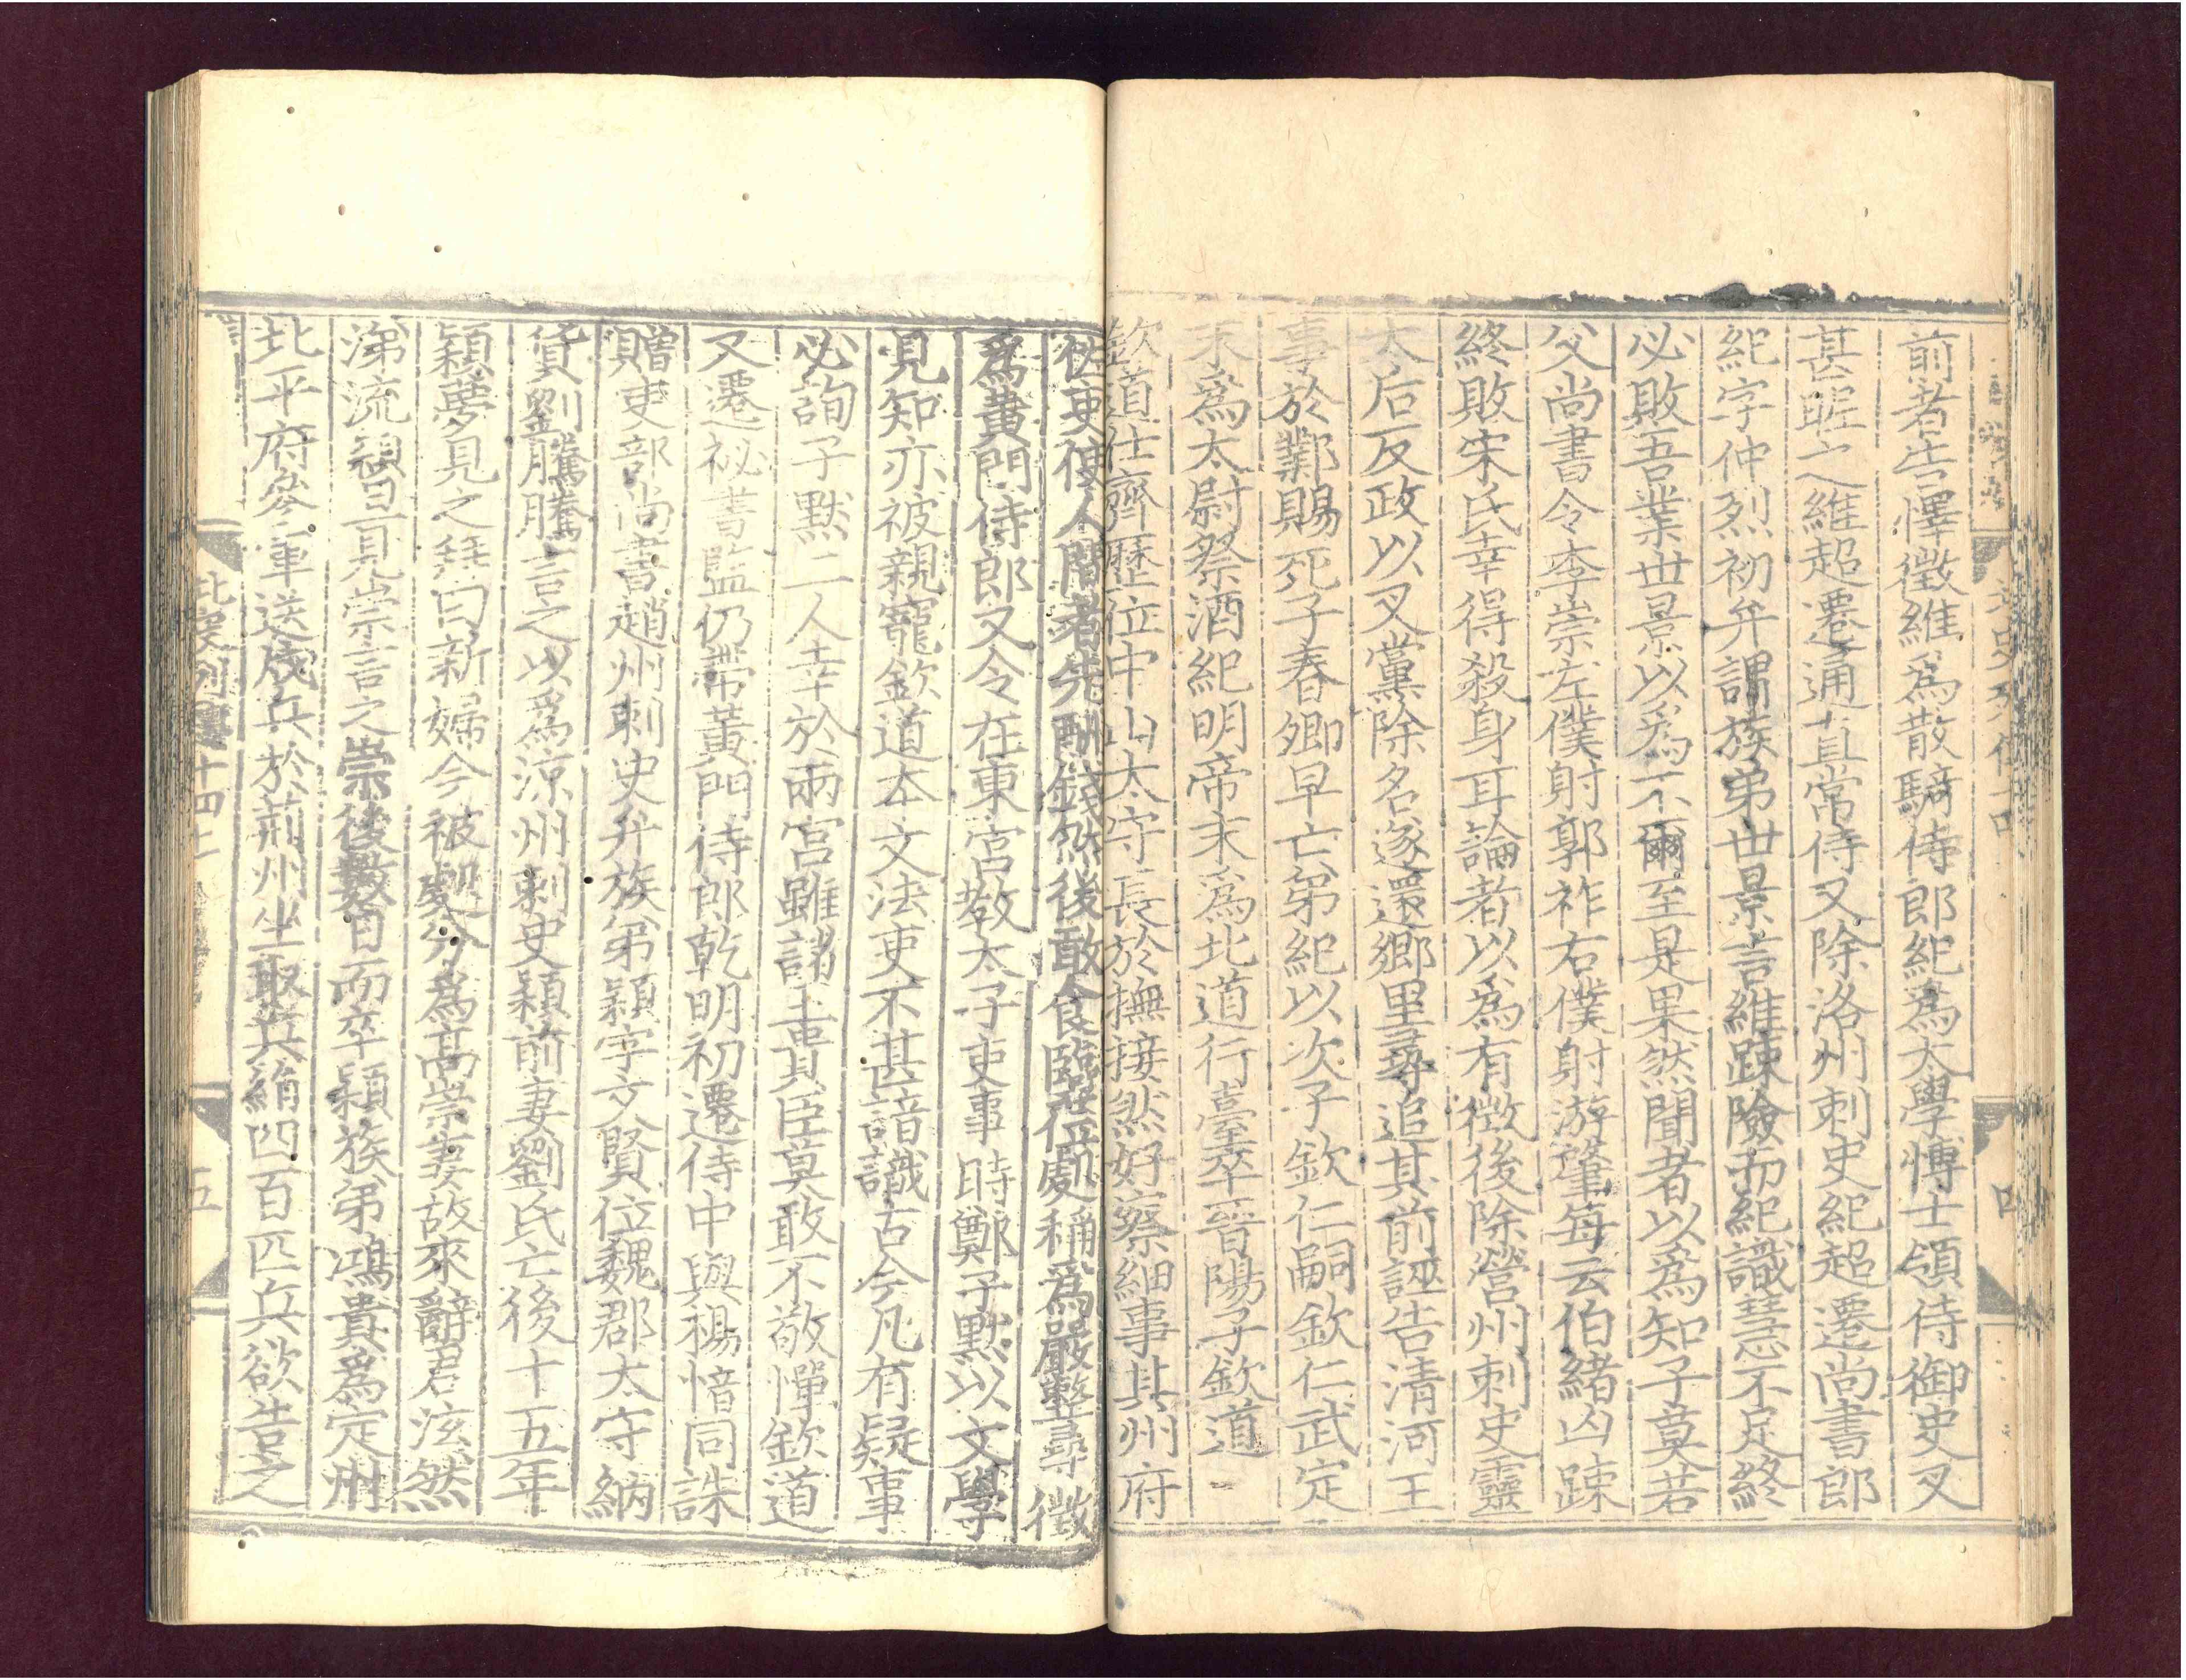 前者告懌徵維爲散騎侍郎紀爲太學愽士領侍御史又
甚昵之維超遷通直常侍又除洛州刺史紀超遷尚書郎
紀字仲烈初弁謂族弟世景言維踈險而紀識慧不足終
必敗吾業世景以爲不爾至是果然聞者以爲知子莫若
父尚書令李崇左僕射郭祚右僕射游肇每云伯緒凶踈
終敗宋氏幸得殺身耳論者以爲有徴後除營州刺史靈
太后反政以叉黨除名遂還鄉里尋追其前誣告清河王
事於鄴賜死子春卿早亡弟紀以次子欽仁嗣欽仁武定
末爲太尉祭酒紀明帝末爲北道行臺卒晉陽子欽道
欽道仕齊歷位中山太守長於撫接然好察細事其州府
佐吏使人間者先酬錢然後敢食臨莅處稱爲嚴整尋徵
爲黄門侍郎又令在東宮教太子吏事時鄭子默以文學
見知亦被親寵欽道本文法吏不甚諳識古今凡有疑事
必詢子默二人幸於兩宮雖諸王貴臣莫敢不敬憚欽道
又遷祕書監仍帶黃門侍郎乾明初遷侍中與楊愔同誅
贈吏部尚書趙州刺史弁族弟穎字文賢位魏郡太守納
貨劉騰騰言之以爲涼州刺史穎前妻劉氏亡後十五年
穎夢見之拜曰新婦今被處分爲髙崇妻故來辭君泫然
涕流穎旦見崇言之崇後數日而卒穎族弟鴻貴爲定州
北平府參軍送戍兵於荊州坐取兵絹四百匹兵欲告之
北史列傳十四
五